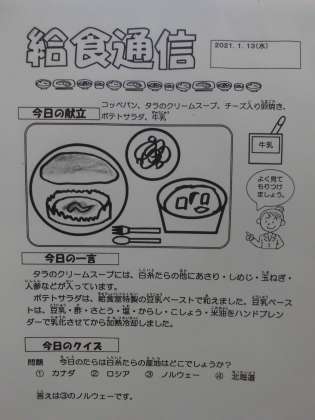 給食通信
2021. 1. 13(水)
今日の献立
コッペパン、タラのクリームスープ、チーズ入り卵焼き、
ポテトサラダ、牛乳
牛乳
よく見て
もりつけ
ましょう。
今日の一言
タラのクリームスープには、白糸たらの他にあさり・しめじ・玉ねぎ・
人参などが入っています。
ポテトサラダは、給食室特製の豆乳ペーストで和えました。豆乳ペース
トは、豆乳・酢・さとう・塩・からし・こしょう・米油をハンドブレン
ダーで乳化させてから加熱冷却しました。
今日のクイズ
問題 今日のたらは白糸たらの産地はどこでしょうか？
① カナダ ② ロシア ③ ノルウェー ④ 北海道
答えは③のノルウェーです。